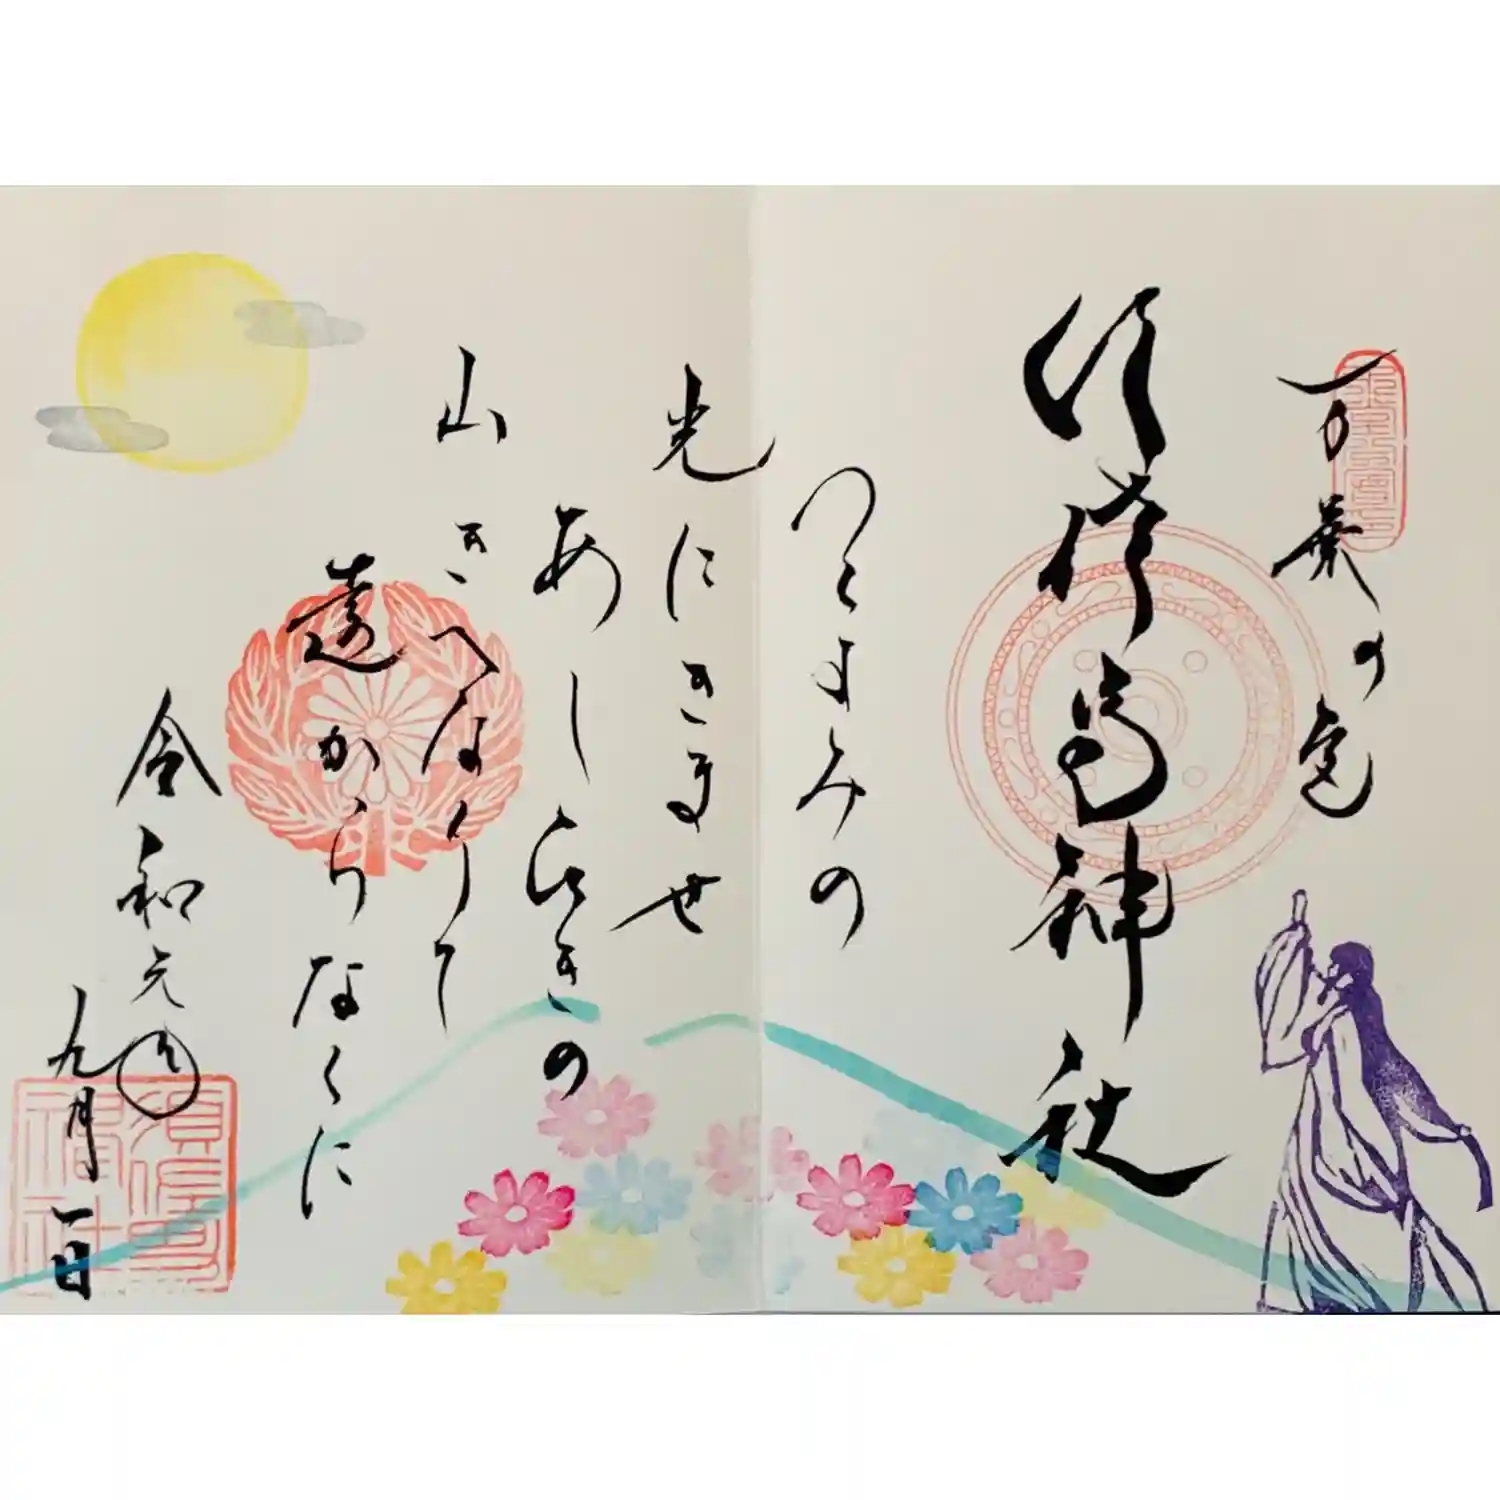 万葉の
神社
つくよみの
光にきませ
あしひきの
山きへなりて
遠からなくに
令和元年
九月一日